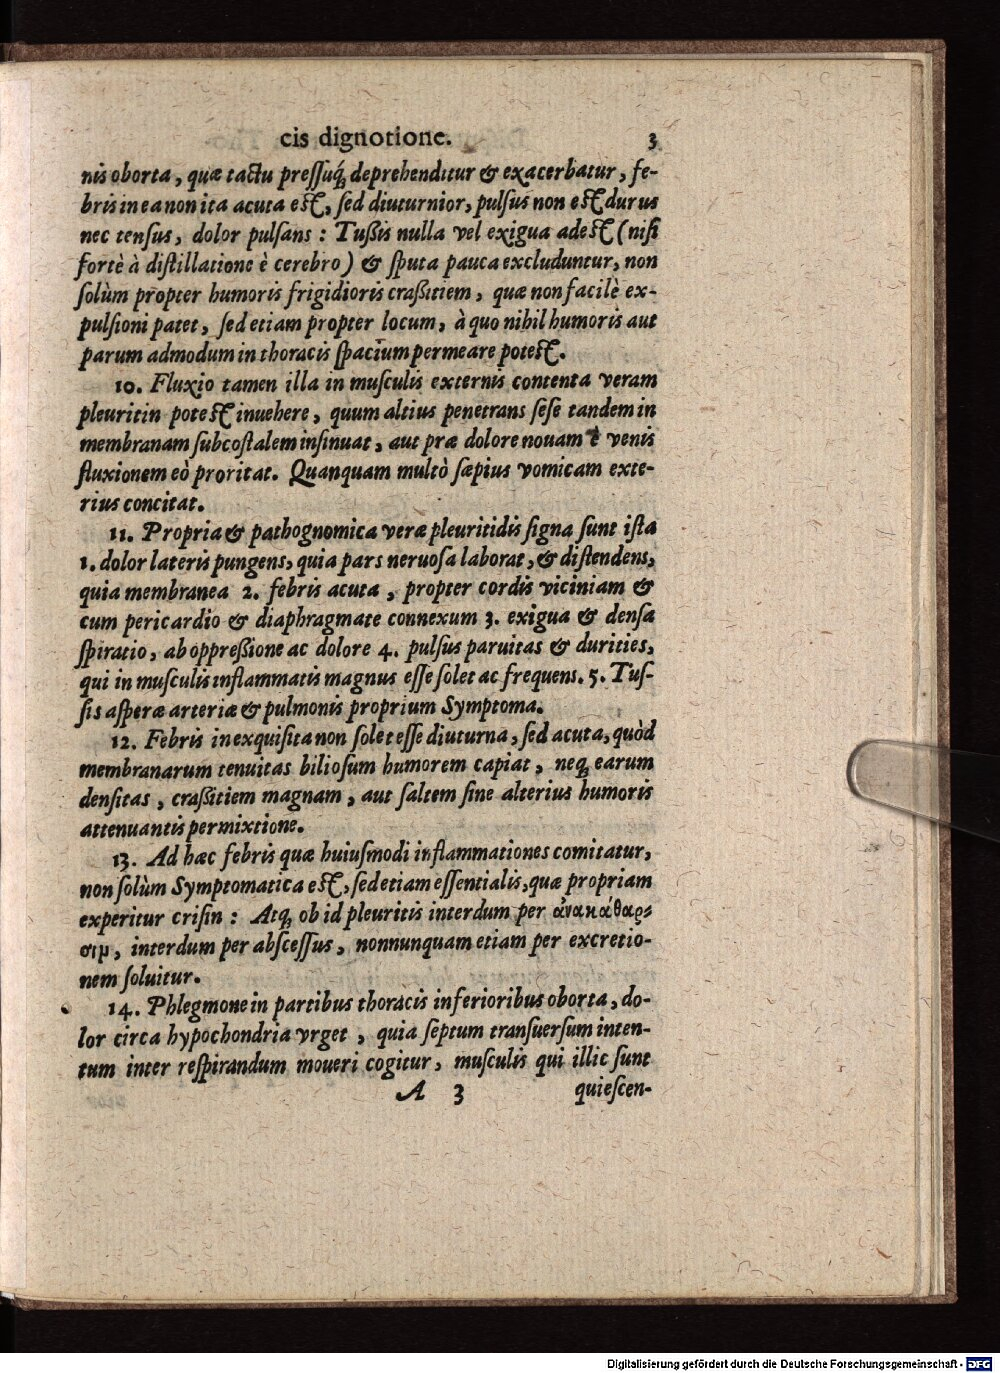 cis dignotione. 3
nis oborta, quæ tactu pressuq́; deprehenditur & exacerbatur, fe-
bris in ea non ita acuta est, sed diuturnior, pulsus non est durus
nec tensus, dolor pulsans: Tußis nulla vel exigua adest (nisi
fortè à distillatione è cerebro) & sputa pauca excluduntur, non
solùm propter humoris frigidioris craßitiem, quæ non facilè ex-
pulsioni patet, sed etiam propter locum, à quo nihil humoris aut
parum admodum in thoracis spacium permeare potest.
10. Fluxio tamen illa in musculis externis contenta veram
pleuritin potest inuehere, quum altius penetrans sese tandem in
membranam subcostalem insinuat, aut præ dolore nouam è venis
fluxionem eò proritat. Quanquam multò sæpius vomicam exte-
rius concitat.
11. Propria & pathognomica veræ pleuritidis signa sunt ista
1. dolor lateris pungens, quia pars neruosa laborat, & distendens,
quia membranea 2. febris acuta, propter cordis viciniam &
cum pericardio & diaphragmate connexum 3. exigua & densa
spiratio, ab oppreßione ac dolore 4. pulsus paruitas & durities,
qui in musculis inflammatis magnus esse solet ac frequens. 5. Tus-
sis asperæ arteriæ & pulmonis proprium Symptoma.
12. Febris in exquisita non solet esse diuturna, sed acuta, quòd
membranarum tenuitas biliosum humorem capiat, neq; earum
densitas, craßitiem magnam, aut saltem sine alterius humoris
attenuantis permixtione.
13. Ad hæc febris quæ huiusmodi inflammationes comitatur,
non solùm Symptomatica est, sed etiam essentialis, quæ propriam
experitur crisin: Atq; ob id pleuritis interdum per ἀνακάθαρ-
σιμ, interdum per abscessus, nonnunquam etiam per excretio-
nem soluitur.
14. Phlegmone in partibus thoracis inferioribus oborta, do-
lor circa hypochondria vrget, quia septum transuersum inten-
tum inter respirandum moueri cogitur, musculis qui illic sunt
A 3 quiescen-
Digitalisierung gefördert durch die Deutsche Forschungsgemeinschaft - DFG